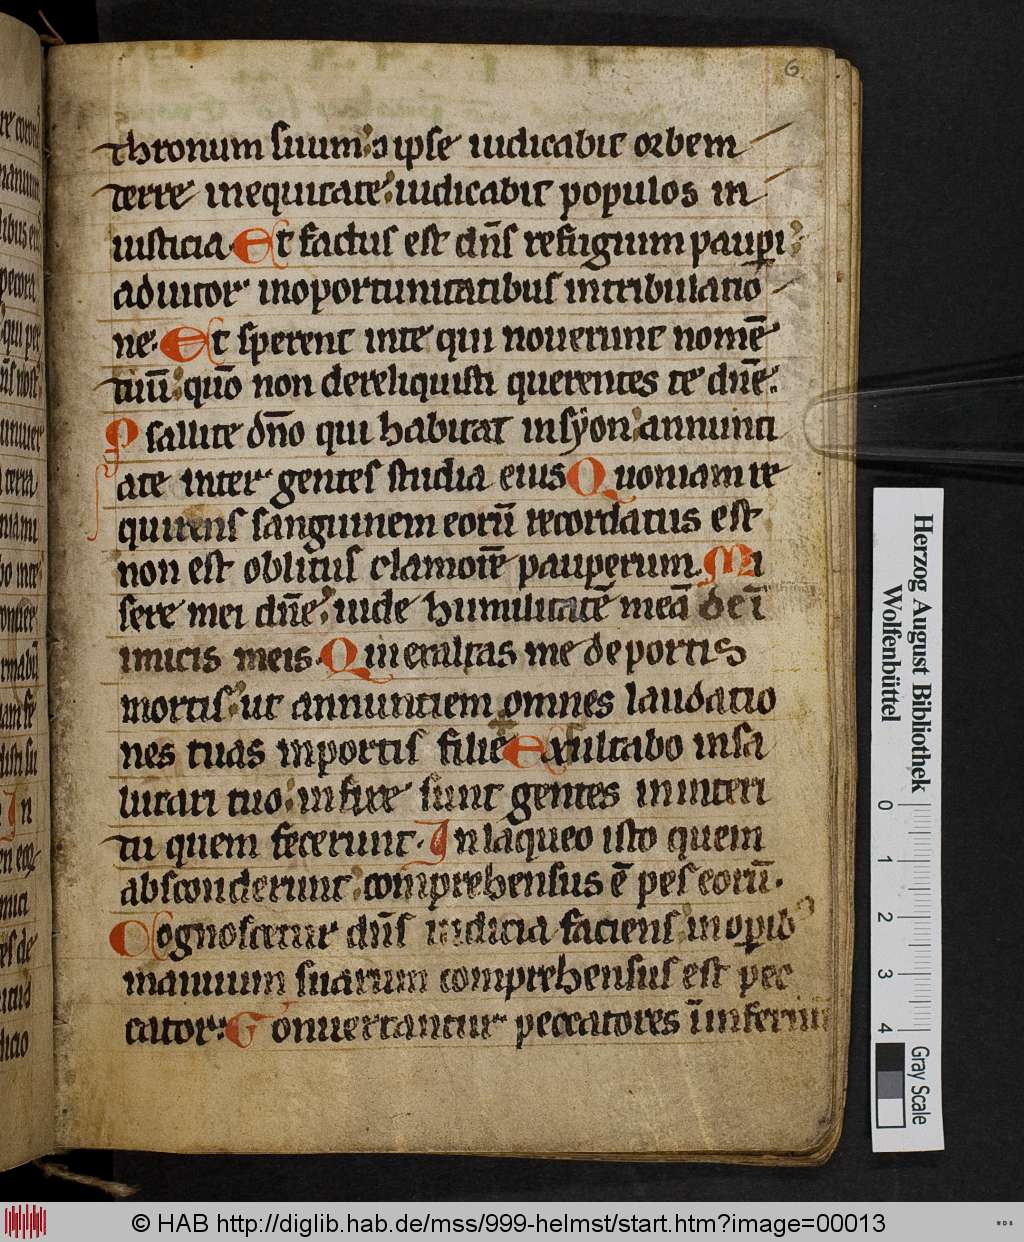 6
thronum suum ⁊ ipse iudicabit orbem
terre inequitate iudicabit populos in
iusticia Et factus est dn̄s refugium paup̲i
adiutor inoportunitatibus intribulatio
ne. Et sperent inte qui nouerunt nomē
tuū quō non dereliquisti querentes te dn̄e
Psallite dn̄o qui habitat insyon annunti
ate inter gentes studia eius Quoniam re
quirens sanguinem eorū recordatus est
non est oblitus clamorē pauperum. Mi
sere mei dn̄e uide humilitatē meā de ī
imicis meis. Qui exaltas me de portis
mortis ut annuntiem omnes laudatio
nes tuas inportis filie exultabo insa
lutari tuo infixe sunt gentes ininteri
tu quem fecerunt. Inlaqueo isto quem
absconderunt comprehensus ē pes eorū.
Cognoscetur dn̄s iudicia faciens inop̲ibꝰ
manuum suarum comprehensus est pec
cator. Conuertantur peccatores ī infernū
Herzog August Bibliothek
Wolfenbüttel
0 1 2 3 4
Gray Scale
© HAB http://diglib.hab.de/mss/999-helmst/start.htm?image=00013